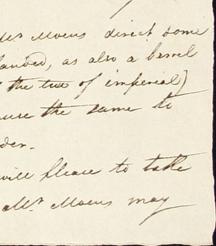 Mr Moens direct some
landed, as also a barrel
the two of imperial)
the same to
will please to take
Mr. Moens may